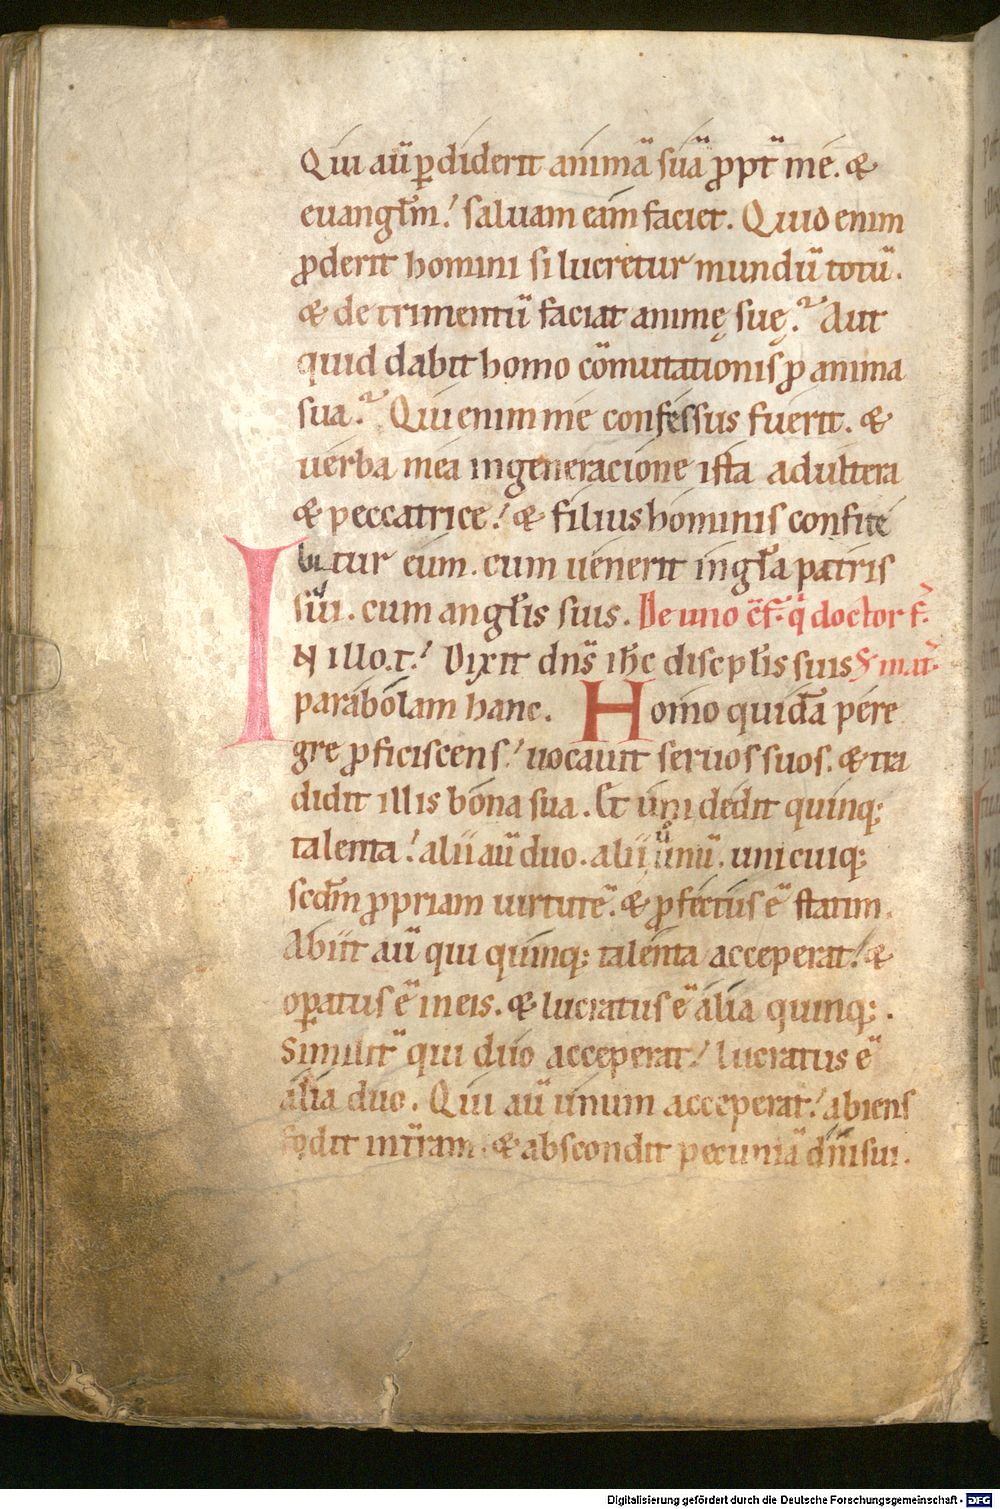 Qui aū ꝑdiderit animā suā ꝓpt̄ me. &
euangl̄m.ʼ saluam eam faciet. Quid enim
ꝓderit homini si lucretur mundū totū.
& detrimentū faciat animę suę.ʼ Aut
quid dabit homo cōmutationis ꝓ anima
sua.ʼ Qui enim me confessus fuerit. &
uerba mea in generacione ista adultera
& peccatrice.ʼ & filius hominis confite
bitur eum. cum uenerit in gl̄a patris
sui. cum angl̄is suis. De uno c̄f. q̄ doctor f.
IN illo.t.ʼ Dixit dn̄s ih̄c discipl̄is suis S. mat̄.
parabolam hanc. Homo quidā pere
gre ꝓficiscens.ʼ uocauit seruos suos. & tra
didit illis bona sua. Et uni dedit quinq;
talenta.ʼ alii aū duo. alii ůnū. unicuiq;
scd̄m ꝓpriam uirtutē. & ꝓfectus ē statim.
Abiit aū qui quinq; talenta acceperat.ʼ &
oꝑatus ē in eis. & lucratus ē alia quinq;.
Similit̄ qui duo acceperat.ʼ lucratus ē
alia duo. Qui aū unum acceperat.ʼ abiens
fodit in t̄ram. & abscondit pecuniā dn̄i sui.
Digitalisierung gefördert durch die Deutsche Forschungsgemeinschaft - DFG